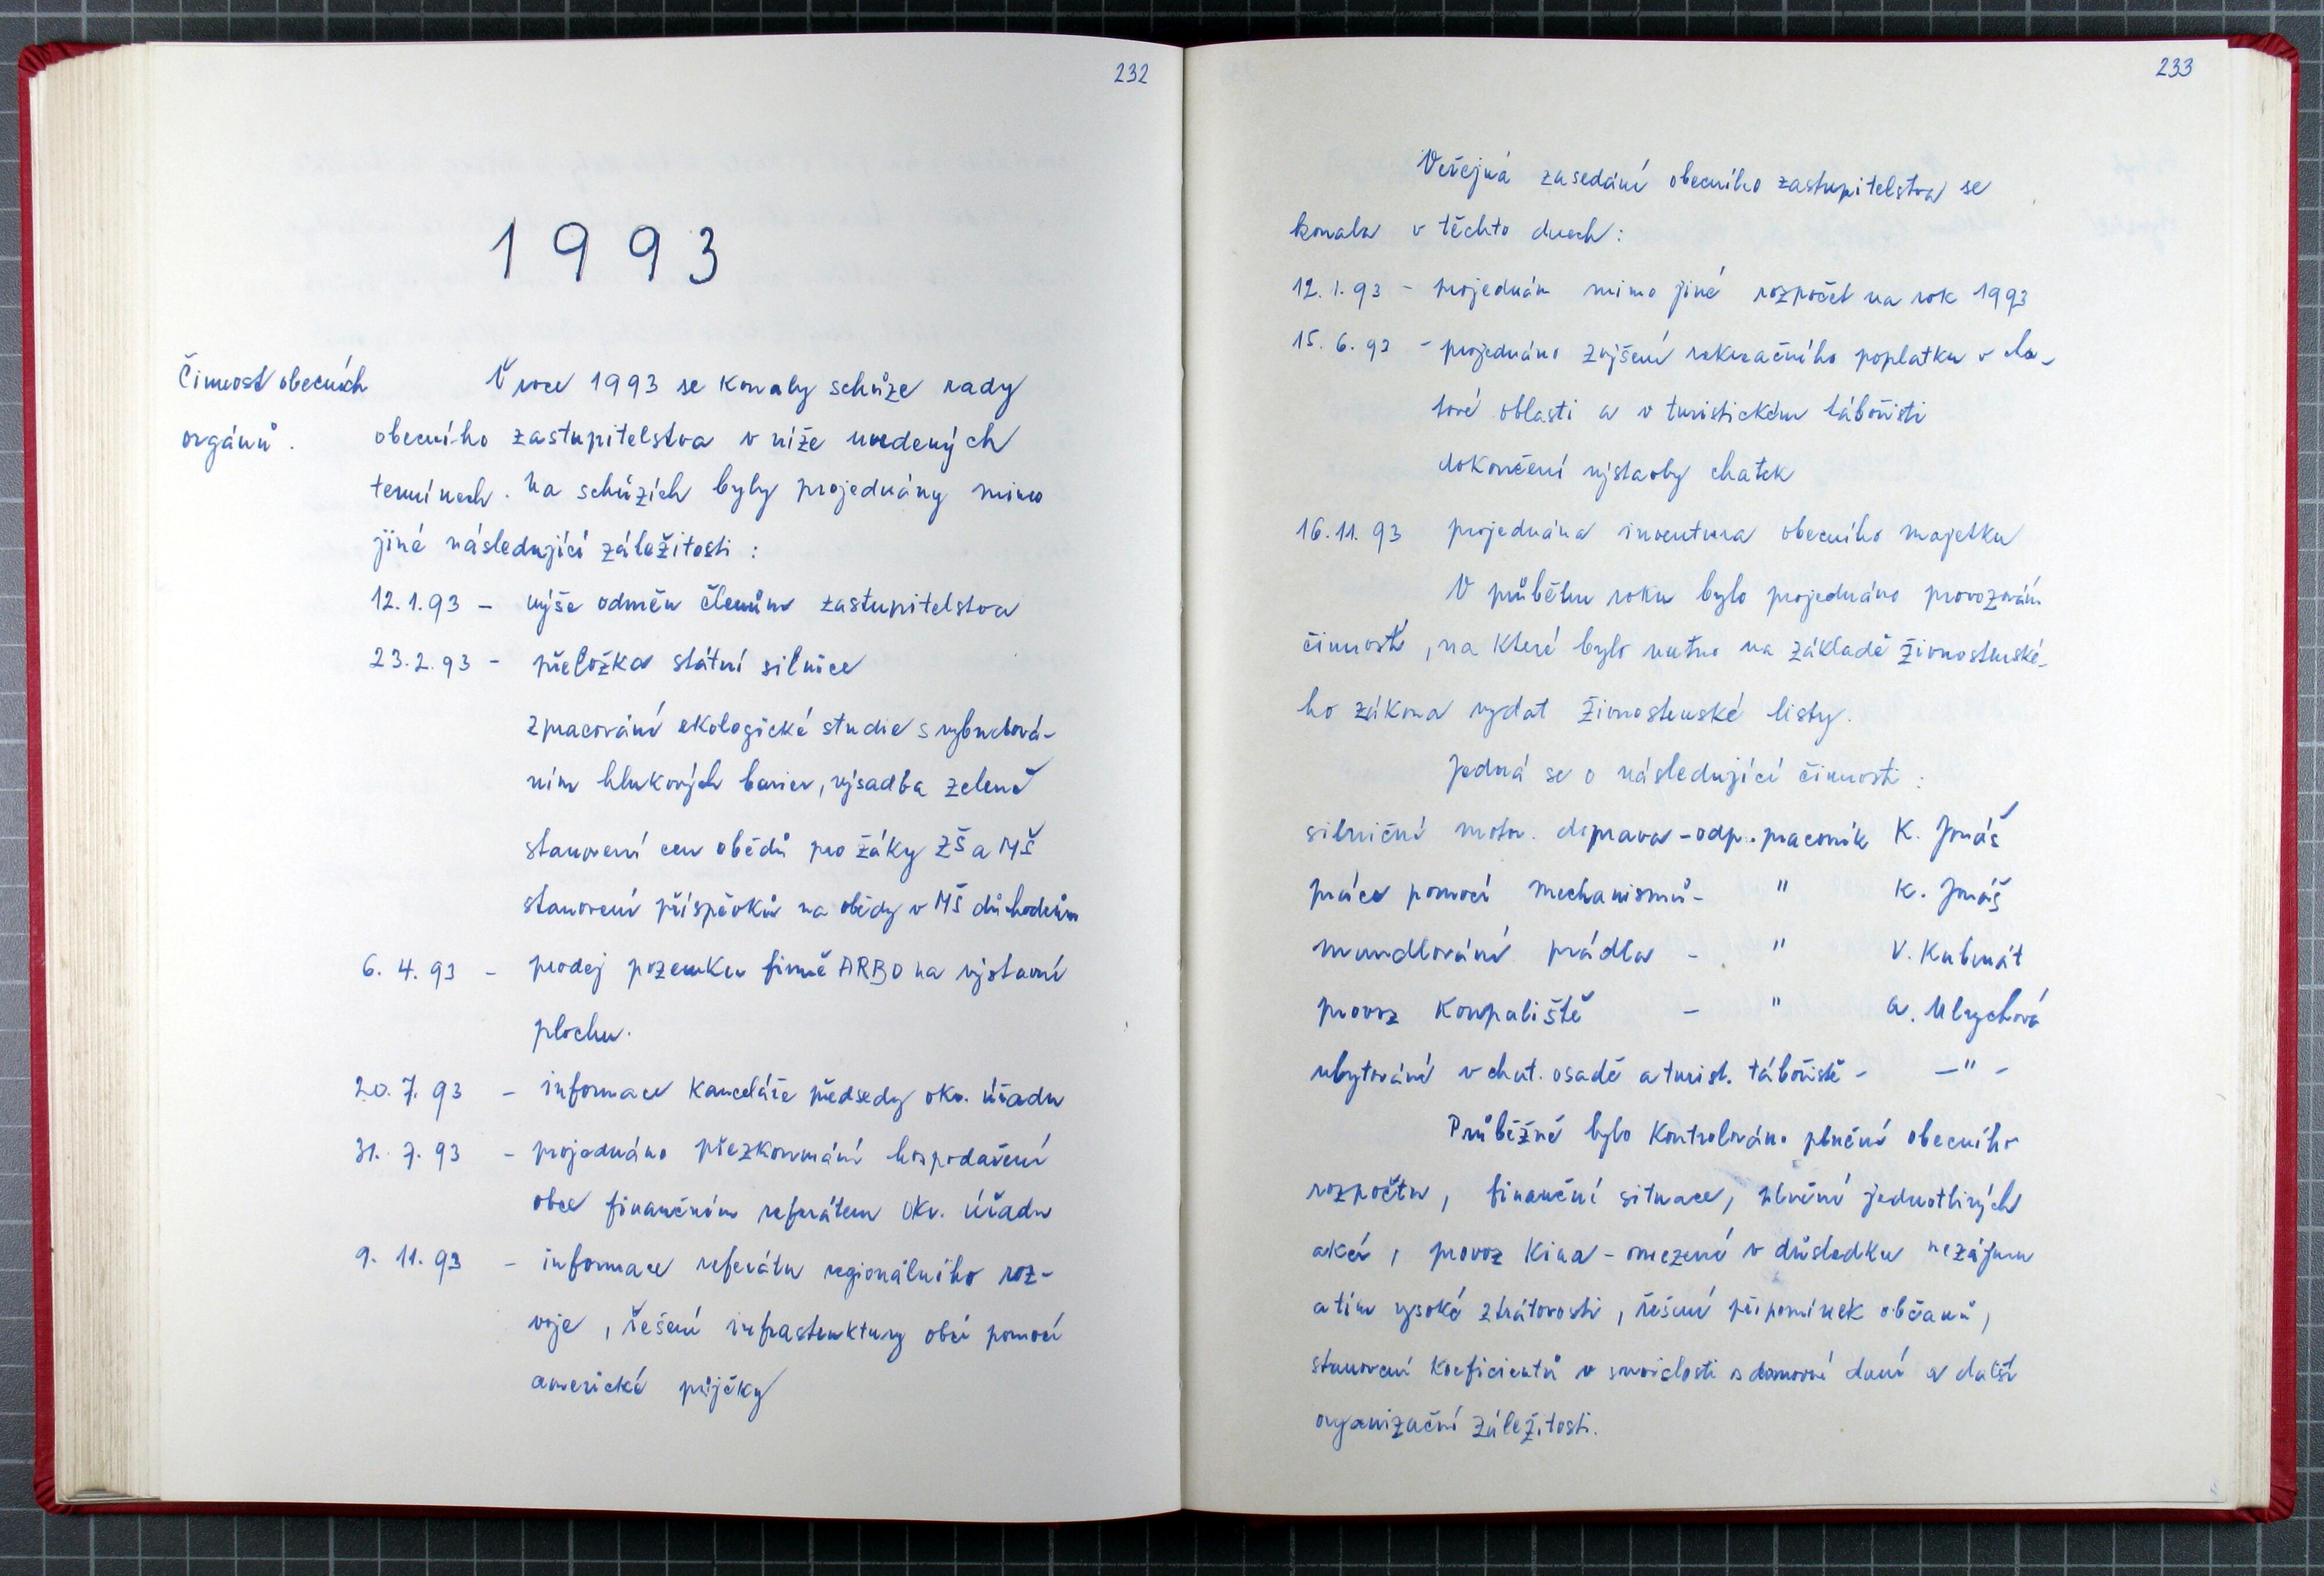 232
1993
Činnost obecních
orgánů.
V roce 1993 se konaly schůze rady
obecního zastupitelstva v níže uvedených
termínech. Na schůzích byly projednány mimo
jiné následující záležitosti:
12.1.93 - výše odměn členům zastupitelstva
23.2.93 - přeložka státní silnice
zpracování ekologické studie s vybudová-
ním hlukových barier, výsadba zeleně
stanovení cen obědů pro žáky ZŠ a MŠ
stanovení příspěvků na obědy v MŠ důchodcům
6. 4. 93 - prodej pozemku firmě ARBO na výstavní
plochu.
20. 7. 93 - informace kanceláře předsedy okr. úřadu
31. 7. 93 - projednáno přezkoumání hospodaření
obce finančním referátem Okr. úřadu
9. 11. 93 - informace referátu regionálního roz-
voje, řešení infrastruktury obcí pomocí
americké půjčky
233
Veřejná zasedání obecního zastupitelstva se
konala v těchto dnech:
12. 1. 93 - projednán mimo jiné rozpočet na rok 1993
15. 6. 93 - projednáno zvýšení rekreačního poplatku v cha-
tové oblasti a v turistickém tábořišti
dokončení výstavby chatek
16. 11. 93 projednána inventura obecního majetku
V průběhu roku bylo projednáno provozování
činností, na které bylo nutno na základě živnostenské-
ho zákona vydat živnostenské listy.
Jedná se o následující činnosti:
silniční motor. doprava - odp. pracovník K. Jonáš
práce pomocí mechanismů - " K. Jonáš
mandlování prádla - " V. Kubrát
provoz koupaliště - " A. Ulrychová
ubytování v chat. osadě a turist. tábořiště - -"-
Průběžně bylo kontrolováno plnění obecního
rozpočtu, finanční situace, plnění jednotlivých
akcí, provoz kina - omezení v důsledku nezájmu
a tím vysoké ztrátovosti, řešení připomínek občanů,
stanovení koeficientů v souvislosti s domovní daní a další
organizační záležitosti.